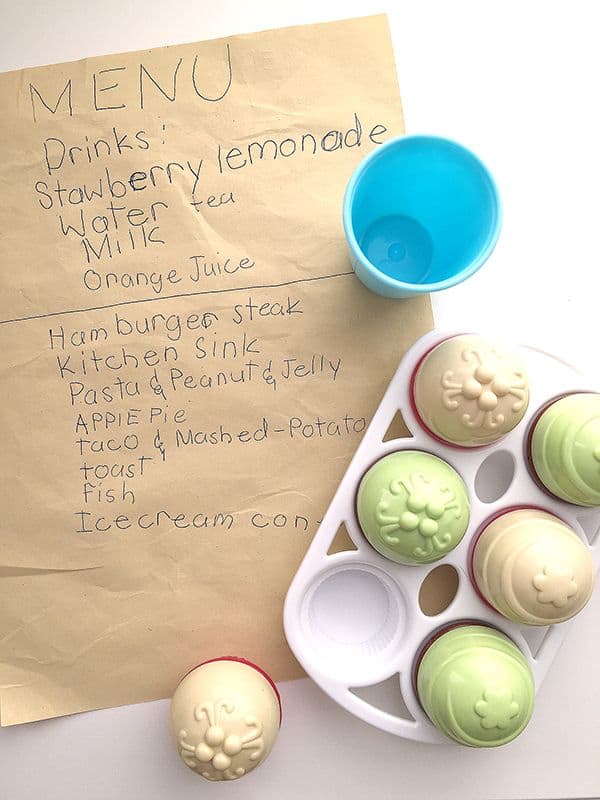 MENU
Drinks:
Stawberry lemonade
Water tea
Milk
Orange Juice
Hamburger steak
Kitchen Sink
Pasta & Peanut & Jelly
APPlE PiE
taco & Mashed-Potato
toast
fish
Icecream con